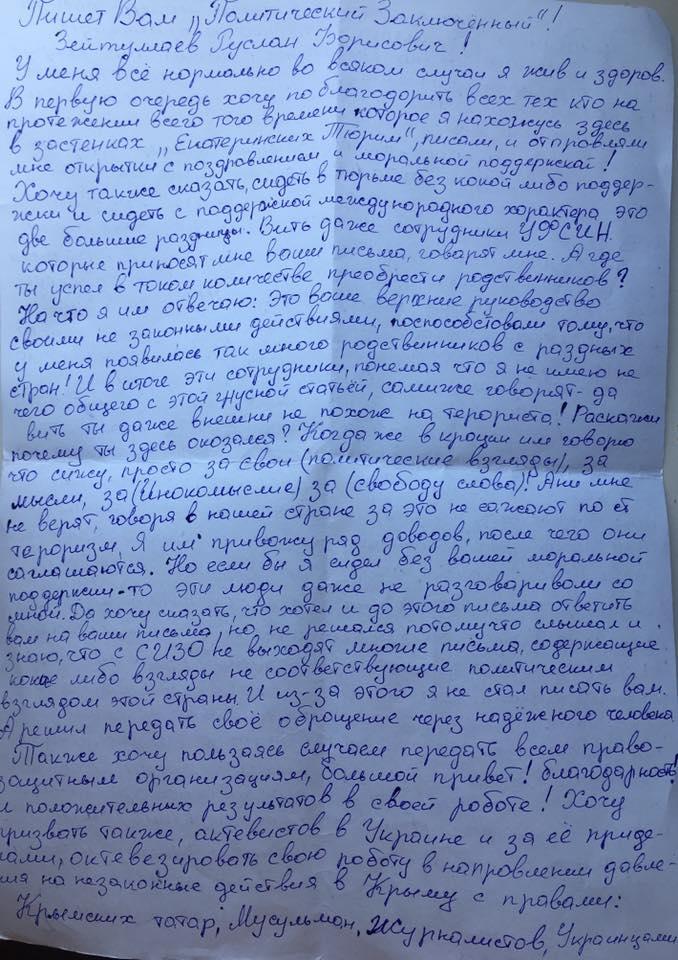 Пишет Вам „Политический Заключённый"!
Зейтуллаев Руслан Борисович!
У меня всё нормально во всяком случаи я жив и здоров.
В первую очередь хочу поблагодорить всех тех кто на
протежении всего того времени которое я нахожусь здесь
в застенках „Екотеринских Тюрим", писали, и отправляли
мне открытки с поздравлением и моральной поддержкай!
Хочу также сказать, сидеть в тюрьме без какой либо поддер-
жки и сидеть с поддержкой международного характера это
две большие разницы. Вить даже сотрудники УФСИН.
которые приносят мне ваши письма, говорят мне. А где
ты успел в таком количестве преобрести родственников?
На что я им отвечаю: Это ваше верхние руководство
своими не законными действиями, поспособствовали тому, что
у меня появилось так много родственников с раздных
стран! И в итоге эти сотрудники, понемая что я не имею не
чего общего с этой грусной статьёй, самиже говорят-да
вить ты даже внешни не похож на терориста! Раскажи
почему ты здесь оказался? Когда же в кроции им говорю
что сижу, просто за свои (политические взгляды), за
мысли, за (Инокомыслие) за (свободу слова)! Ани мне
не верят, говоря в нашей стране за это не сажают по ст
тероризм, Я им привожу ряд доводов, после чего они
соглашаются. Но если бы я сидел без вашей моральной
поддержки-то эти люди даже не разговаривали со
мной. Да хочу сказать, что хотел и до этого письма ответить
вам на ваши письма, но не решался потомучто слышал и
знаю, что с СИЗО не выходят многие письма, содержащие
какие либо взгляды не соответствующие политическим
взглядом этой страны. И из-за этого я не стал писать вам.
А решил передать своё обращение через надёжного человека
Также хочу пользаясь случаем передать всем право-
защитным организациям, большой привет! благодарность!
и положительных результатов в своей роботе! Хочу
призвать также, актевистов в Украине и за её приде-
лами, октевезировать свою роботу в напровлении давле-
ния на незаконные действия в Крыму с правами:
Крымских татар, Мусульман, Журналистов, Украинцами